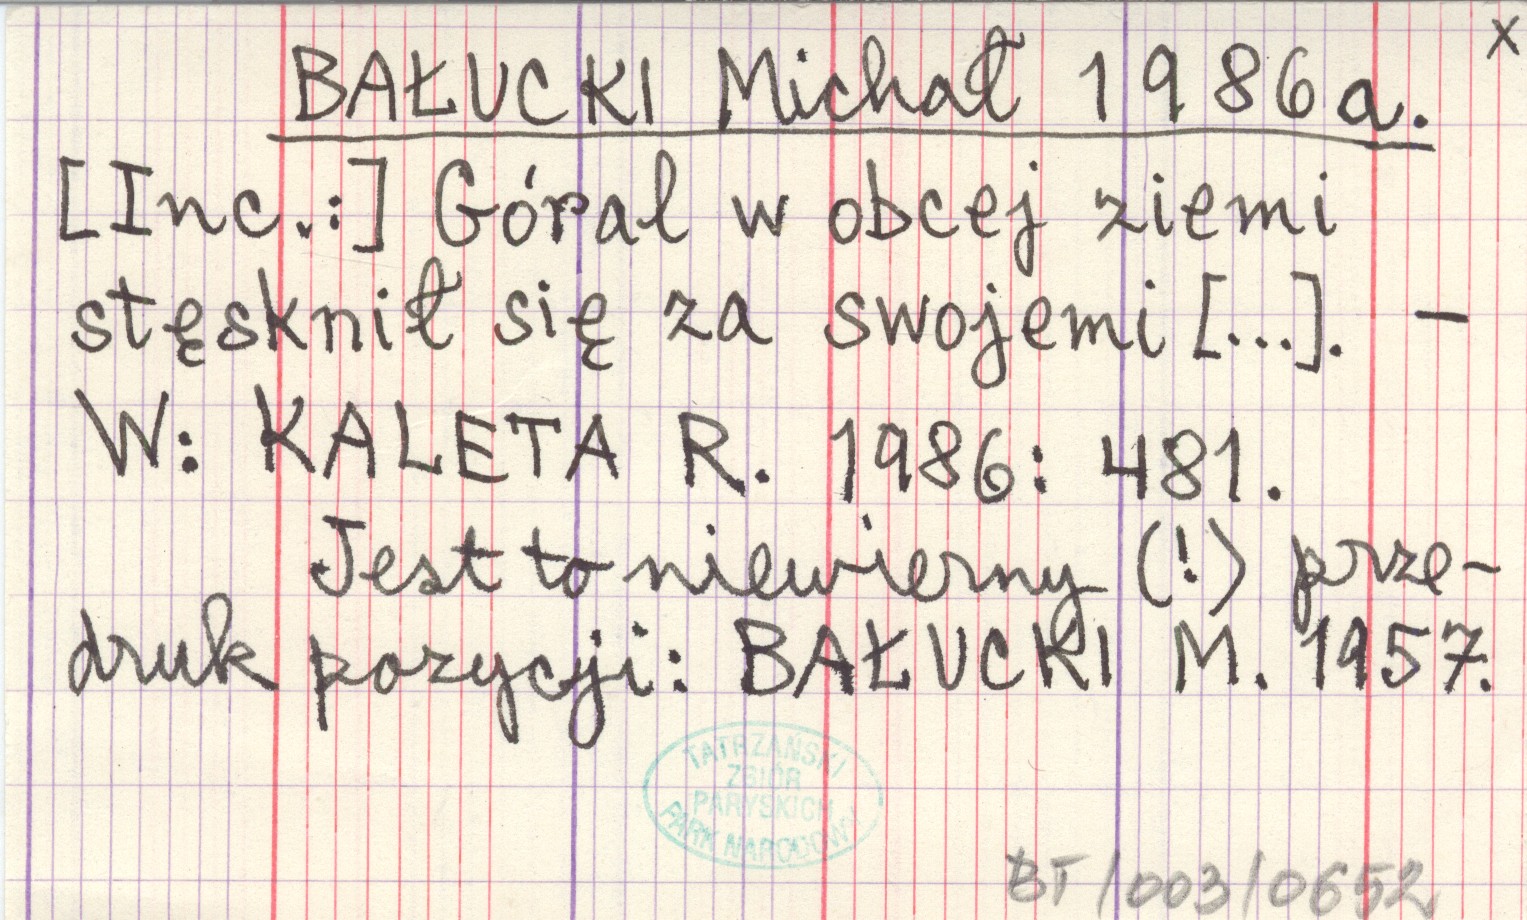 x
BAŁUCKI Michał 1986a.
[Inc.:] Góral w obcej ziemi
stęsknił się za swojemi [...]. –
W: KALETA R. 1986: 481.
Jest to niewierny (!) prze-
druk pozycji: BAŁUCKI M. 1957.
TATRZAŃSKI
ZBIÓR
PARYSKICH
PARK NARODOWY
BT/003/0652